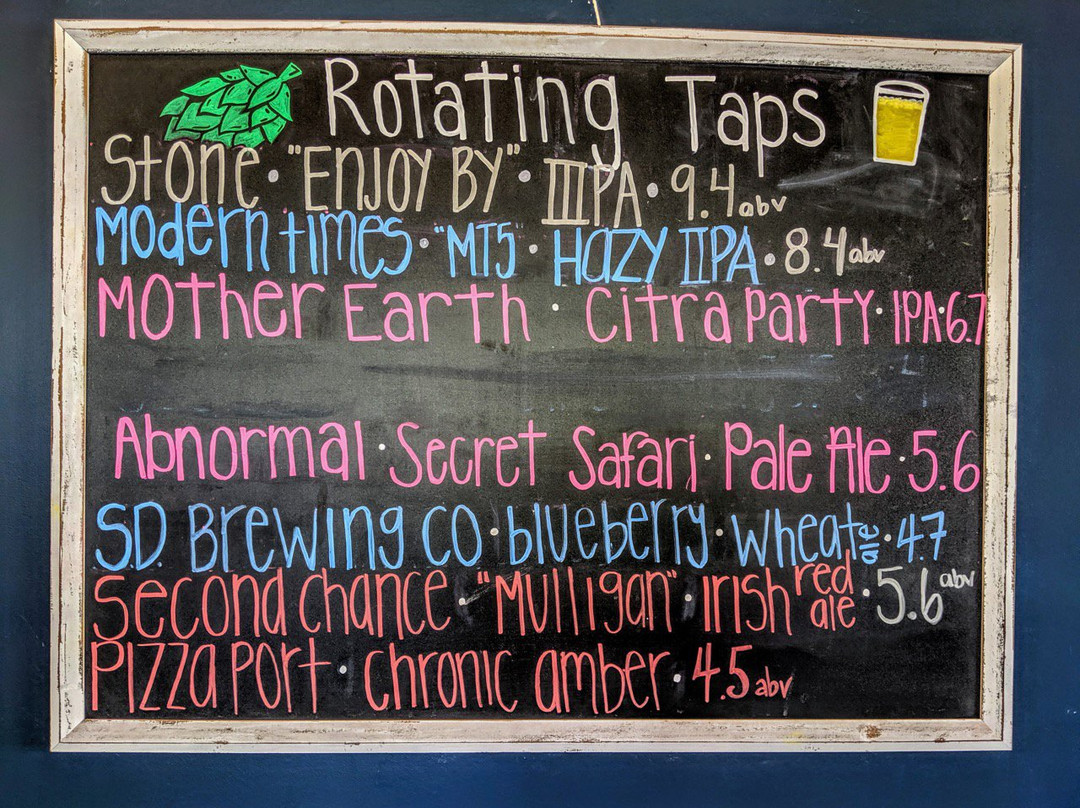 Rotating Taps
Stone · "ENJOY BY" · IIIPA · 9.4 abv
Modern times · "MT5" · HAZY IIPA · 8.4 abv
MOther Earth · Citra Party · IPA · 6.7
Abnormal · Secret Safari · Pale Ale · 5.6
S.D. Brewing CO · blueberry · wheat ale · 4.7
Second Chance · "Mulligan" · irish red ale · 5.6 abv
Pizza Port · chronic amber · 4.5 abv